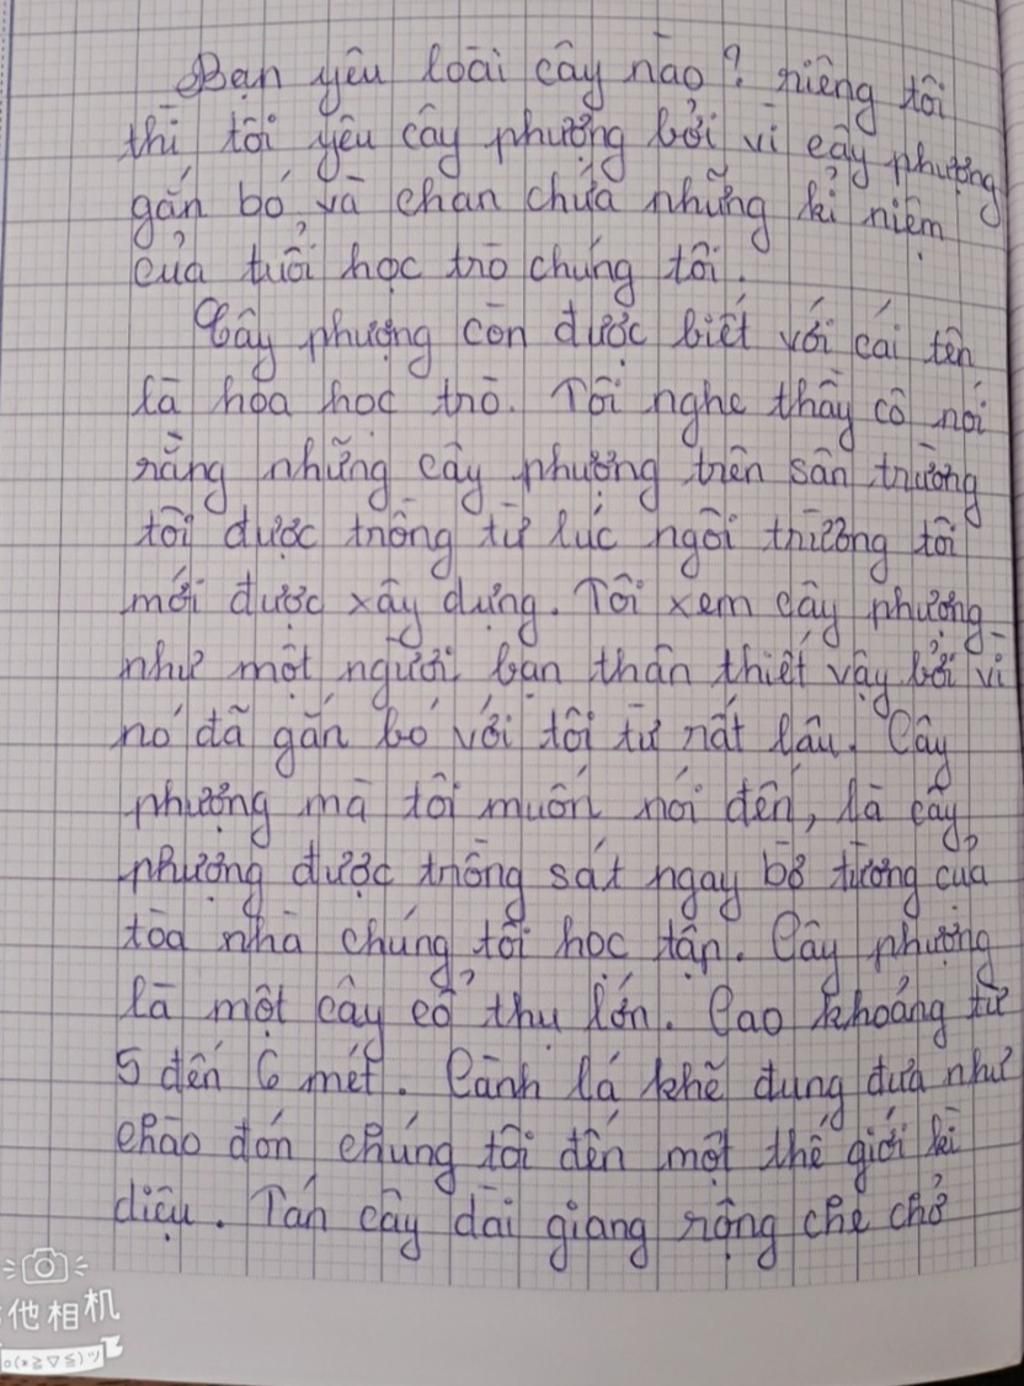 Bạn yêu loài cây nào? riêng tôi
thì tôi yêu cây phượng bởi vì cây phượng
gắn bó và chan chứa những kỉ niệm
của tuổi học trò chúng tôi.
Cây phượng còn được biết với cái tên
là hoa học trò. Tôi nghe thầy cô nói
rằng những cây phượng trên sân trường
tôi được trồng từ lúc ngôi trường tôi
mới được xây dựng. Tôi xem cây phượng
như một người bạn thân thiết vậy bởi vì
nó đã gắn bó với tôi từ rất lâu. Cây
phượng mà tôi muốn nói đến, là cây
phượng được trồng sát ngay bờ tường của
tòa nhà chúng tôi học tập. Cây phượng
là một cây cổ thụ lớn. Cao khoảng từ
5 đến 6 mét. Cành lá khẽ đung đưa như
chào đón chúng tôi đến một thế giới kì
diệu. Tán cây dài giang rộng che chở
他相机
o(*≧▽≦)ツ